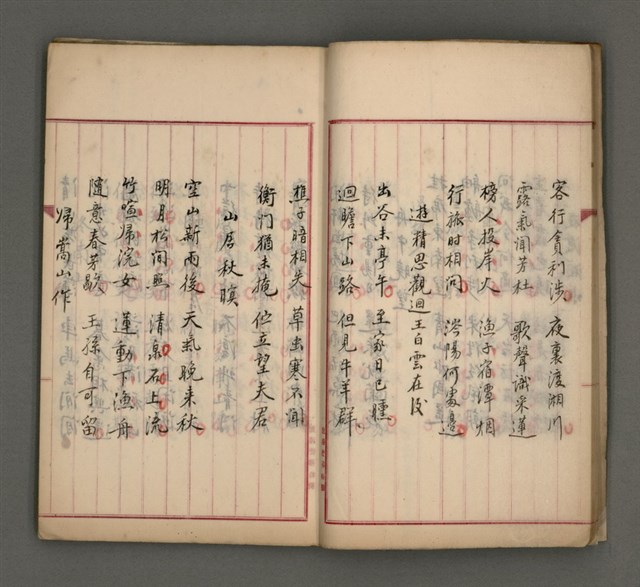 客行貪利涉 夜裏渡湘川
露氣聞芳杜 歌聲識采蓮
榜人投岸火 漁子宿潭烟
行旅时相问 涔陽何處邉
遊精思觀迴王白雲在后
出谷未亭午 至家日已曛
迴瞻下山路 但见牛羊群
樵子暗相失 草虫寒不闻
衡门猶未掩 佇立望夫君
山居秋暝
空山新雨後 天氣晚来秋
明月松间照 清泉石上流
竹喧歸浣女 蓮動下渔舟
隨意春芳歇 王孫自可留
歸嵩山作